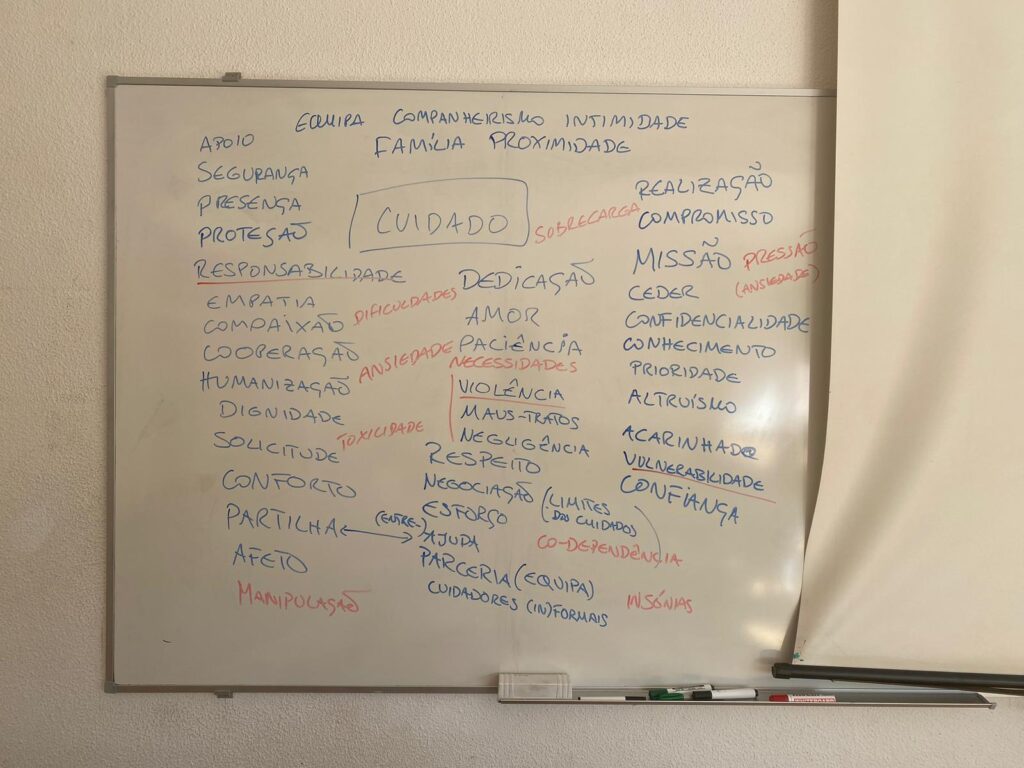 EQUIPA COMPANHEIRISMO INTIMIDADE
FAMÍLIA PROXIMIDADE
APOIO
SEGURANÇA
PRESENÇA
PROTEÇÃO
RESPONSABILIDADE
EMPATIA
COMPAIXÃO
COOPERAÇÃO
HUMANIZAÇÃO
DIGNIDADE
SOLICITUDE
CONFORTO
PARTILHA
AFETO
MANIPULAÇÃO
DIFICULDADES
ANSIEDADE
TOXICIDADE
CUIDADO
SOBRECARGA
DEDICAÇÃO
AMOR
PACIÊNCIA
NECESSIDADES
VIOLÊNCIA
MAUS-TRATOS
NEGLIGÊNCIA
RESPEITO
NEGOCIAÇÃO (LIMITES
DOS CUIDADOS
ESFORÇO
(ENTRE-)AJUDA
CO-DEPENDÊNCIA
PARCERIA (EQUIPA)
CUIDADORES (IN)FORMAIS
INSÓNIAS
REALIZAÇÃO
COMPROMISSO
MISSÃO PRESSÃO
(ANSIEDADE)
CEDER
CONFIDENCIALIDADE
CONHECIMENTO
PRIORIDADE
ALTRUÍSMO
ACARINHADOR
VULNERABILIDADE
CONFIANÇA